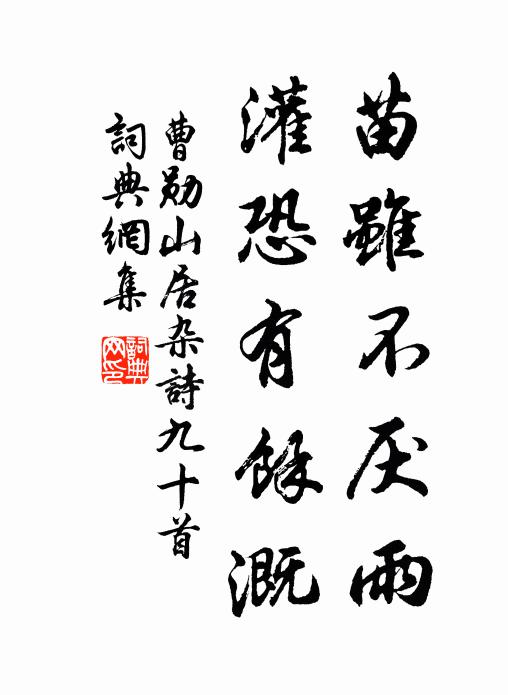 苗雖不厌雨
灌恐有餘溉
曹勋山居杂詩九十首
詞典網集
詞典網印